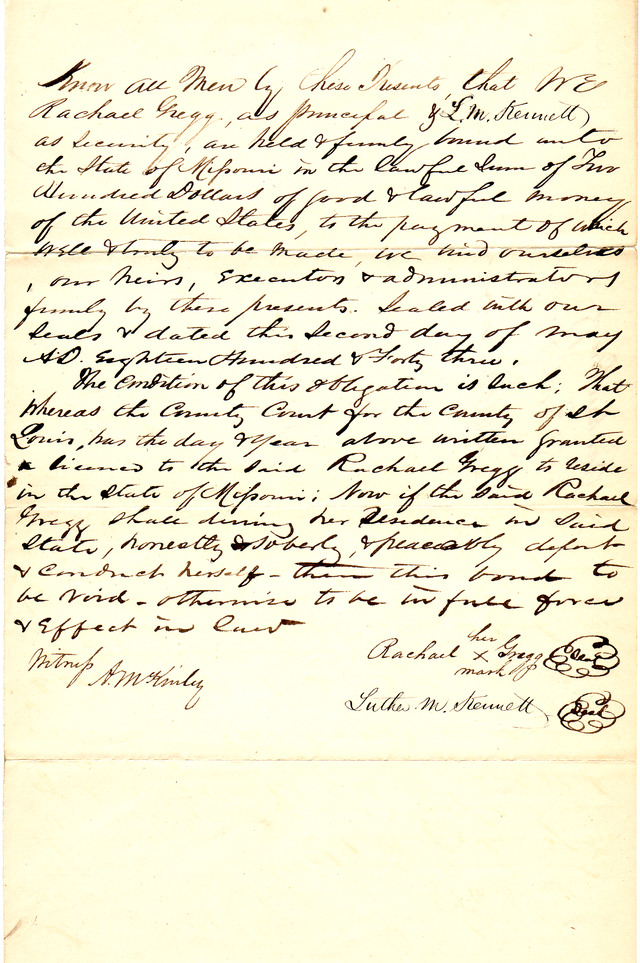 Know all Men by these Presents, that We
Rachael Gregg, as principal & L. M. Kennett
as security, are held & firmly bound unto
the State of Missouri in the lawful Sum of Two
Hundred Dollars of good & lawful money
of the United States, to the payment of which
well & truly to be made, we bind ourselves
, our heirs, Executors & administrators
firmly by these presents. Sealed with our
Seals & dated this Second day of May
AD. Eighteen Hundred & Forty three.
The Condition of this obligation is Such; That
whereas the County Court for the County of St
Louis, has the day & year above written granted
a licence to the said Rachael Gregg to reside
in the State of Missouri; Now if the said Rachael
Gregg shall during her residence in Said
State, honestly & soberly, & peaceably deport
& conduct herself - then this bond to
be void - otherwise to be in full force
& Effect in law
Witness
A. McKinley
Rachael her x mark Gregg Seal
Luther M. Kennett Seal